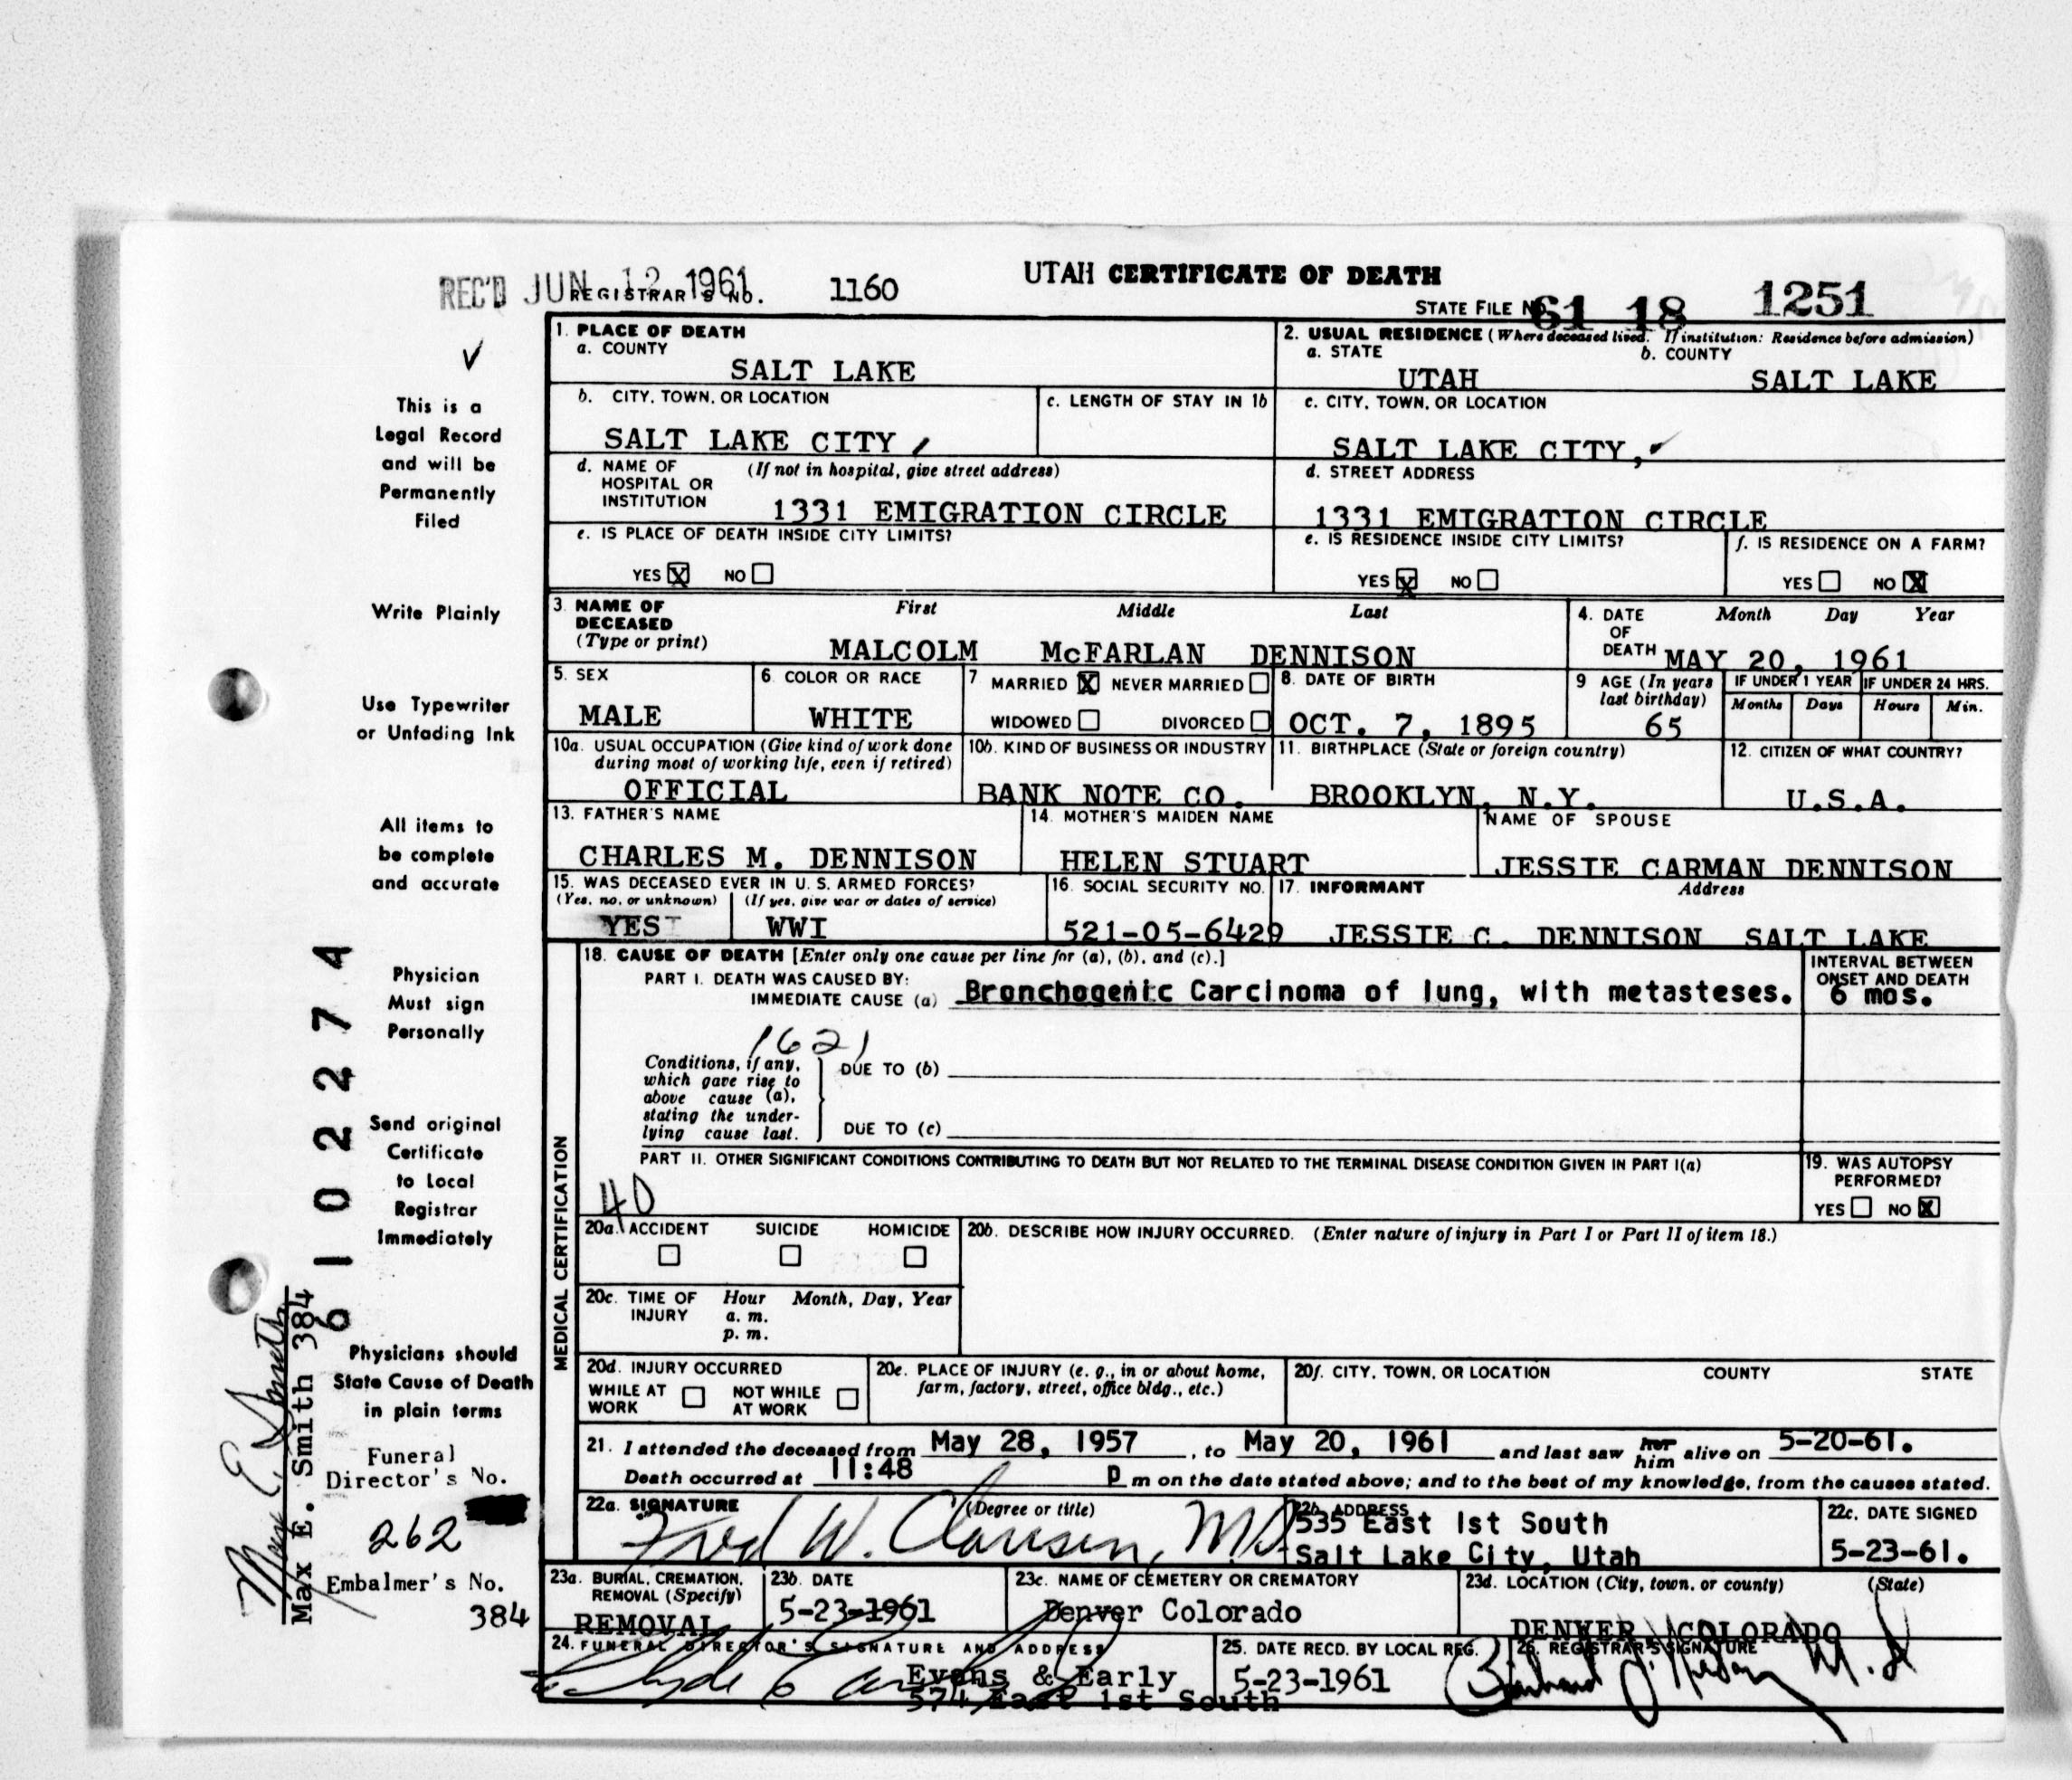 UTAH CERTIFICATE OF DEATH
REC'D JUN 12 1961 REGISTRAR'S NO. 1160
STATE FILE NO. 61 18 1251
1. PLACE OF DEATH
a. COUNTY
SALT LAKE
2. USUAL RESIDENCE (Where deceased lived. If institution: Residence before admission)
a. STATE b. COUNTY
UTAH SALT LAKE
b. CITY, TOWN, OR LOCATION
SALT LAKE CITY,
c. LENGTH OF STAY IN 1b
c. CITY, TOWN, OR LOCATION
SALT LAKE CITY,
d. NAME OF HOSPITAL OR INSTITUTION (If not in hospital, give street address)
1331 EMIGRATION CIRCLE
d. STREET ADDRESS
1331 EMIGRATION CIRCLE
e. IS PLACE OF DEATH INSIDE CITY LIMITS?
YES X NO
e. IS RESIDENCE INSIDE CITY LIMITS?
YES X NO
f. IS RESIDENCE ON A FARM?
YES NO X
3. NAME OF DECEASED (Type or print) First Middle Last
MALCOLM McFARLAN DENNISON
4. DATE OF DEATH Month Day Year
MAY 20, 1961
5. SEX
MALE
6. COLOR OR RACE
WHITE
7. MARRIED X NEVER MARRIED
WIDOWED DIVORCED
8. DATE OF BIRTH
OCT. 7, 1895
9 AGE (In years last birthday)
65
IF UNDER 1 YEAR IF UNDER 24 HRS.
Months Days Hours Min.
10a. USUAL OCCUPATION (Give kind of work done during most of working life, even if retired)
OFFICIAL
10b. KIND OF BUSINESS OR INDUSTRY
BANK NOTE CO.
11. BIRTHPLACE (State or foreign country)
BROOKLYN, N.Y.
12. CITIZEN OF WHAT COUNTRY?
U.S.A.
13. FATHER'S NAME
CHARLES M. DENNISON
14. MOTHER'S MAIDEN NAME
HELEN STUART
NAME OF SPOUSE
JESSIE CARMAN DENNISON
15. WAS DECEASED EVER IN U. S. ARMED FORCES?
(Yes, no, or unknown) (If yes, give war or dates of service)
YES WWI
16. SOCIAL SECURITY NO.
521-05-6429
17. INFORMANT Address
JESSIE C. DENNISON SALT LAKE
MEDICAL CERTIFICATION
18. CAUSE OF DEATH [Enter only one cause per line for (a), (b), and (c).]
PART I. DEATH WAS CAUSED BY:
IMMEDIATE CAUSE (a) Bronchogenic Carcinoma of lung, with metasteses.
INTERVAL BETWEEN ONSET AND DEATH
6 mos.
1621
Conditions, if any, which gave rise to above cause (a), stating the underlying cause last.
DUE TO (b)
DUE TO (c)
PART II. OTHER SIGNIFICANT CONDITIONS CONTRIBUTING TO DEATH BUT NOT RELATED TO THE TERMINAL DISEASE CONDITION GIVEN IN PART I(a)
40
19. WAS AUTOPSY PERFORMED?
YES NO X
20a. ACCIDENT SUICIDE HOMICIDE
20b. DESCRIBE HOW INJURY OCCURRED. (Enter nature of injury in Part I or Part II of item 18.)
20c. TIME OF INJURY Hour Month, Day, Year
a. m.
p. m.
20d. INJURY OCCURRED
WHILE AT WORK NOT WHILE AT WORK
20e. PLACE OF INJURY (e. g., in or about home, farm, factory, street, office bldg., etc.)
20f. CITY, TOWN, OR LOCATION COUNTY STATE
21. I attended the deceased from May 28, 1957, to May 20, 1961 and last saw her him alive on 5-20-61.
Death occurred at 11:48 p m on the date stated above; and to the best of my knowledge, from the causes stated.
22a. SIGNATURE (Degree or title)
Fred W. Clausen, M.D.
22b. ADDRESS
535 East 1st South
Salt Lake City, Utah
22c. DATE SIGNED
5-23-61.
23a. BURIAL, CREMATION, REMOVAL (Specify)
REMOVAL
23b. DATE
5-23-1961
23c. NAME OF CEMETERY OR CREMATORY
Denver Colorado
23d. LOCATION (City, town, or county) (State)
DENVER, COLORADO
24. FUNERAL DIRECTOR'S SIGNATURE AND ADDRESS
Clyde E
Evans & Early
574 East 1st South
25. DATE RECD. BY LOCAL REG.
5-23-1961
26. REGISTRAR'S SIGNATURE
M.D
This is a
Legal Record
and will be
Permanently
Filed
Write Plainly
Use Typewriter
or Unfading Ink
All items to
be complete
and accurate
Physician
Must sign
Personally
Send original
Certificate
to Local
Registrar
Immediately
Physicians should
State Cause of Death
in plain terms
Funeral
Director's No.
262
Embalmer's No.
384
6102274
Max E. Smith
Max E. Smith 384